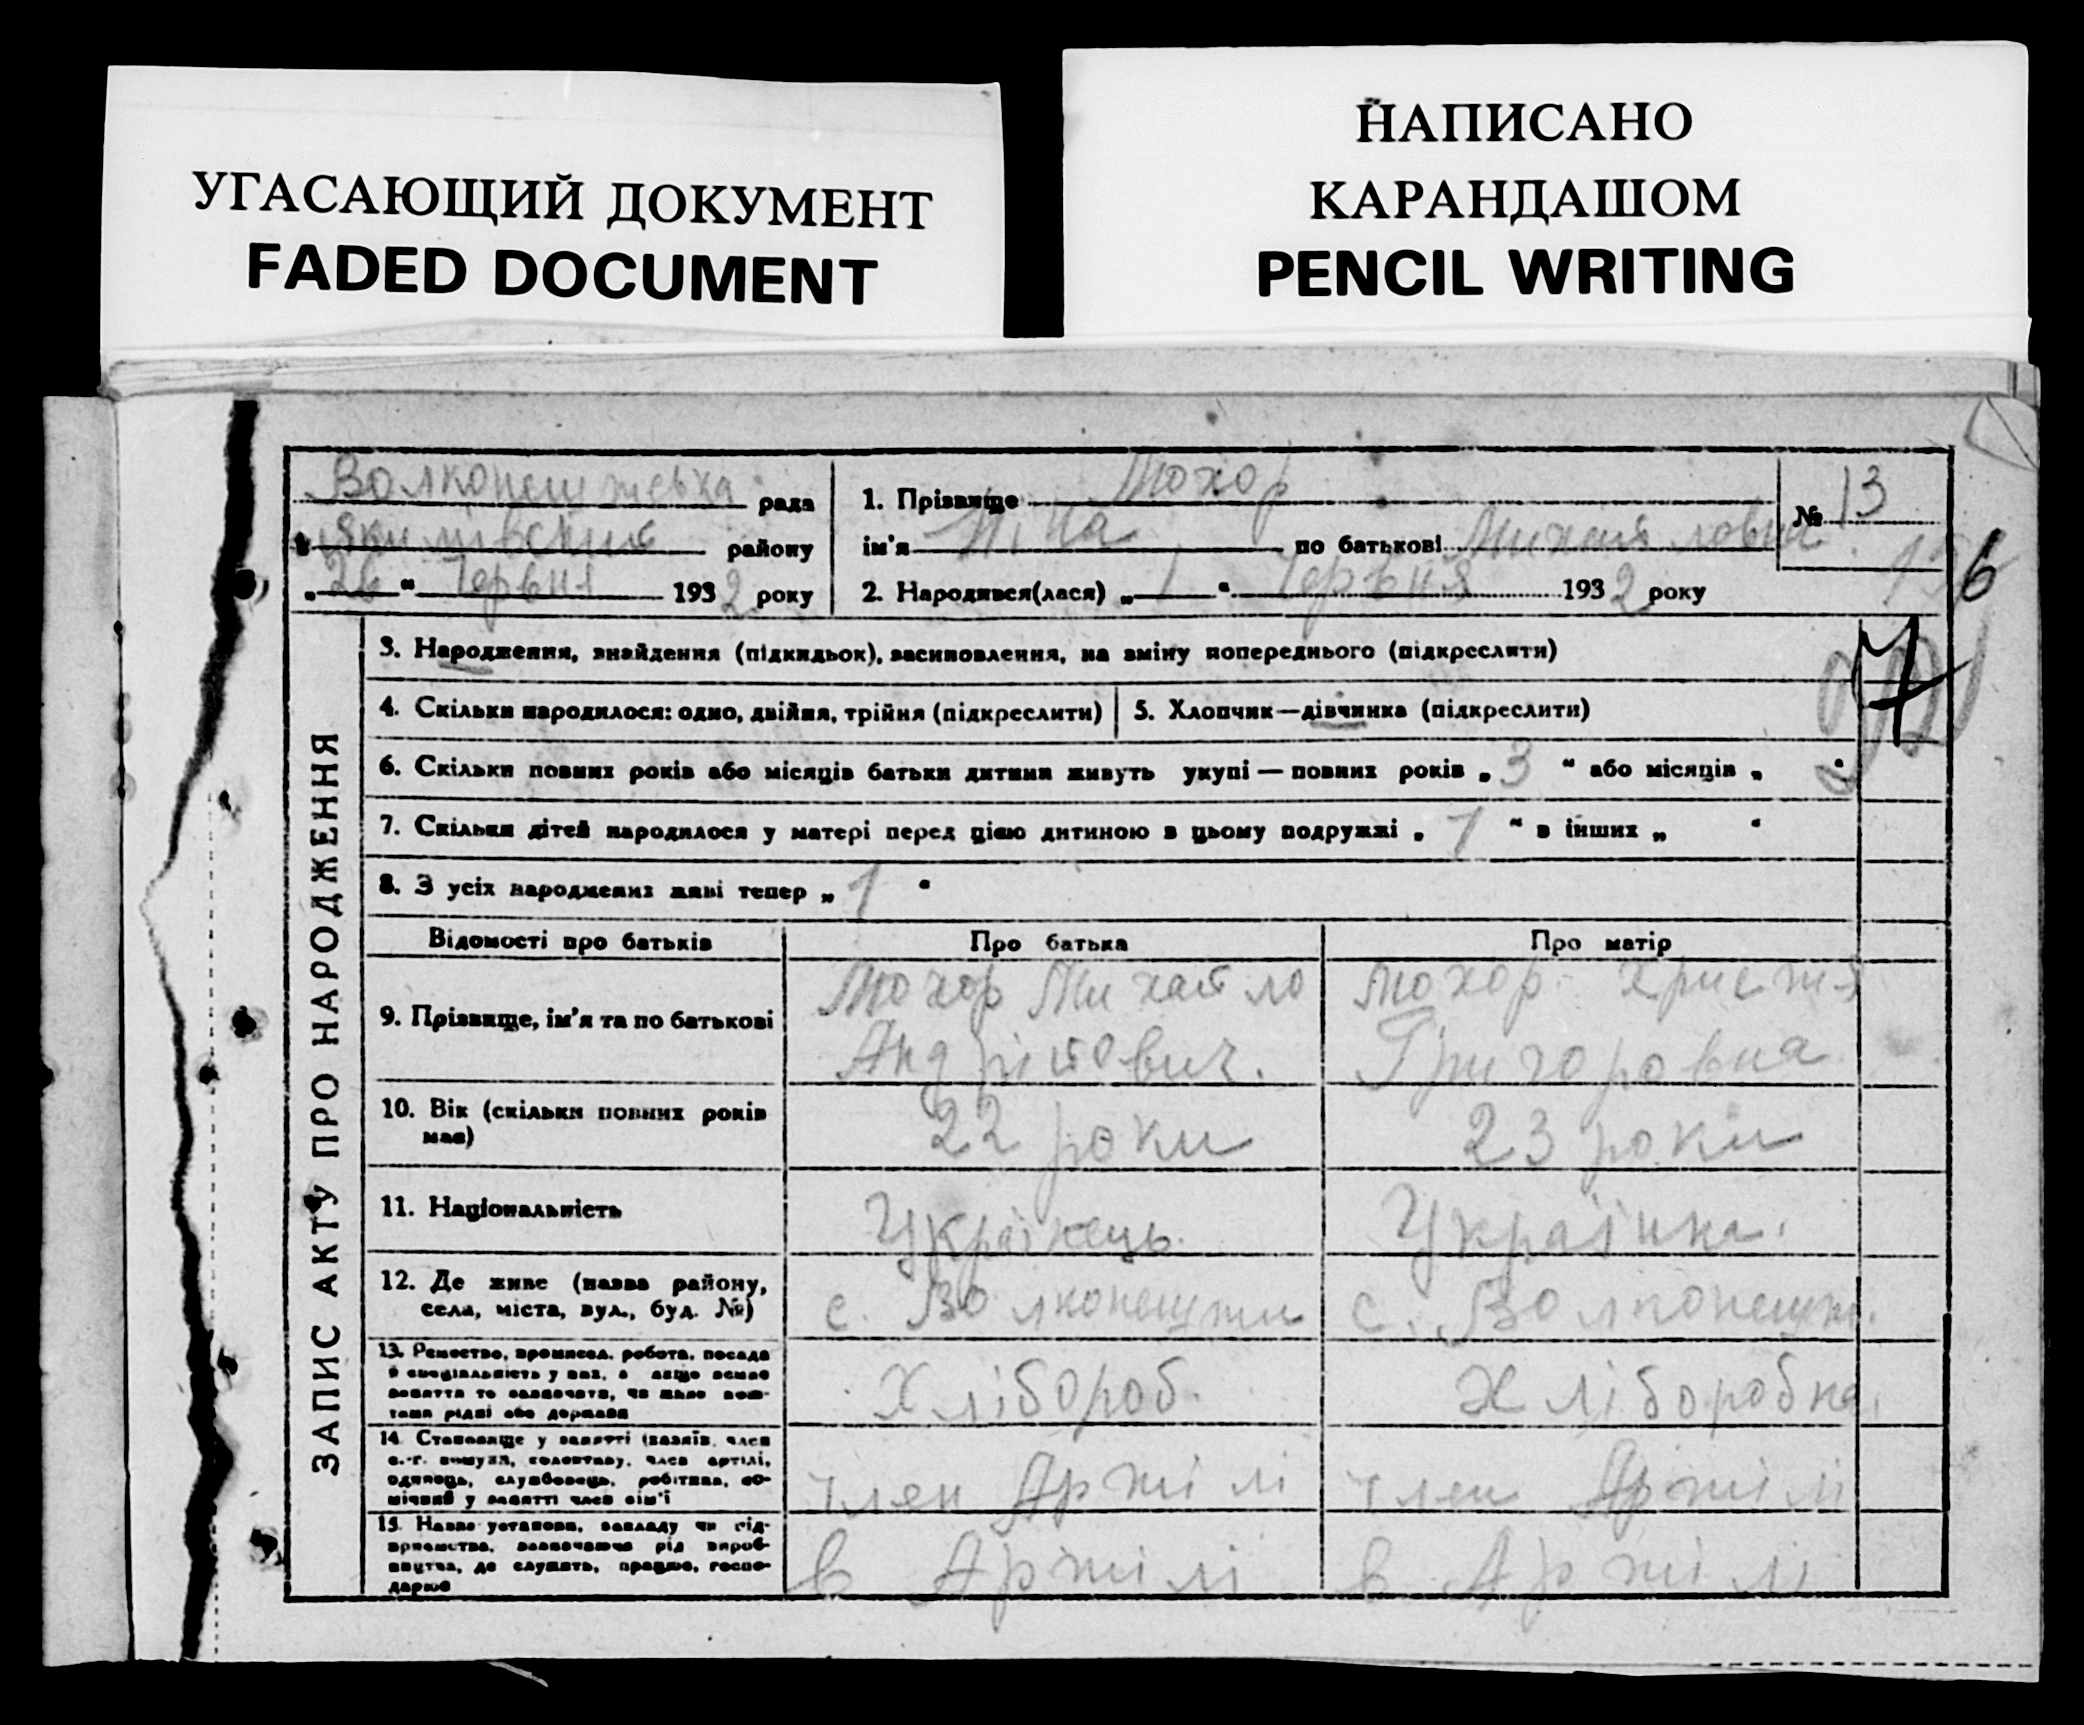 УГАСАЮЩИЙ ДОКУМЕНТ
FADED DOCUMENT
НАПИСАНО
КАРАНДАШОМ
PENCIL WRITING
Волконештська рада
району
„26“ Червня 1932 року
1. Прізвище Мохор
ім'я Ніна по батькові Михайловна
2. Народився(лася) „1“ Червня 1932 року
№ 13
6
7
ЗАПИС АКТУ ПРО НАРОДЖЕННЯ
3. Народження, знайдення (підкидьок), засиновлення, на зміну попереднього (підкреслити)
4. Скільки народилося: одно, двійня, трійня (підкреслити)
5. Хлопчик—дівчинка (підкреслити)
6. Скільки повних років або місяців батьки дитини живуть укупі — повних років „3“ або місяців „ “
7. Скільки дітей народилося у матері перед цією дитиною в цьому подружжі „1“ в інших „ “
8. З усіх народжених живі тепер „1“
Відомості про батьків
Про батька
Про матір
9. Прізвище, ім'я та по батькові
Мохор Михайло
Андрійович.
Мохор Христя
Григоровна
10. Вік (скільки повних років
має)
22 роки
23 роки
11. Національність
Українець.
Українка.
12. Де живе (назва району,
села, міста, вул., буд. №)
с. Волконешти
с. Волконешт.
13. Ремество, промисел, робота, посада
й спеціальність у них, а якщо немає
заняття то зазначити, чи
рідні або держава
Хлібороб.
Хліборобка.
14. Становище у занятті (хазяїн, член
с.-г. комуни, колективу, член артілі,
одинець, службовець, робітник,
у занятті член сім'ї
член Артілі
член Артілі
15. Назва установи, закладу чи під-
приємства, зазначаючи рід вироб-
ництва, де служить, працює, госпо-
дарює
в Артілі
в Артілі